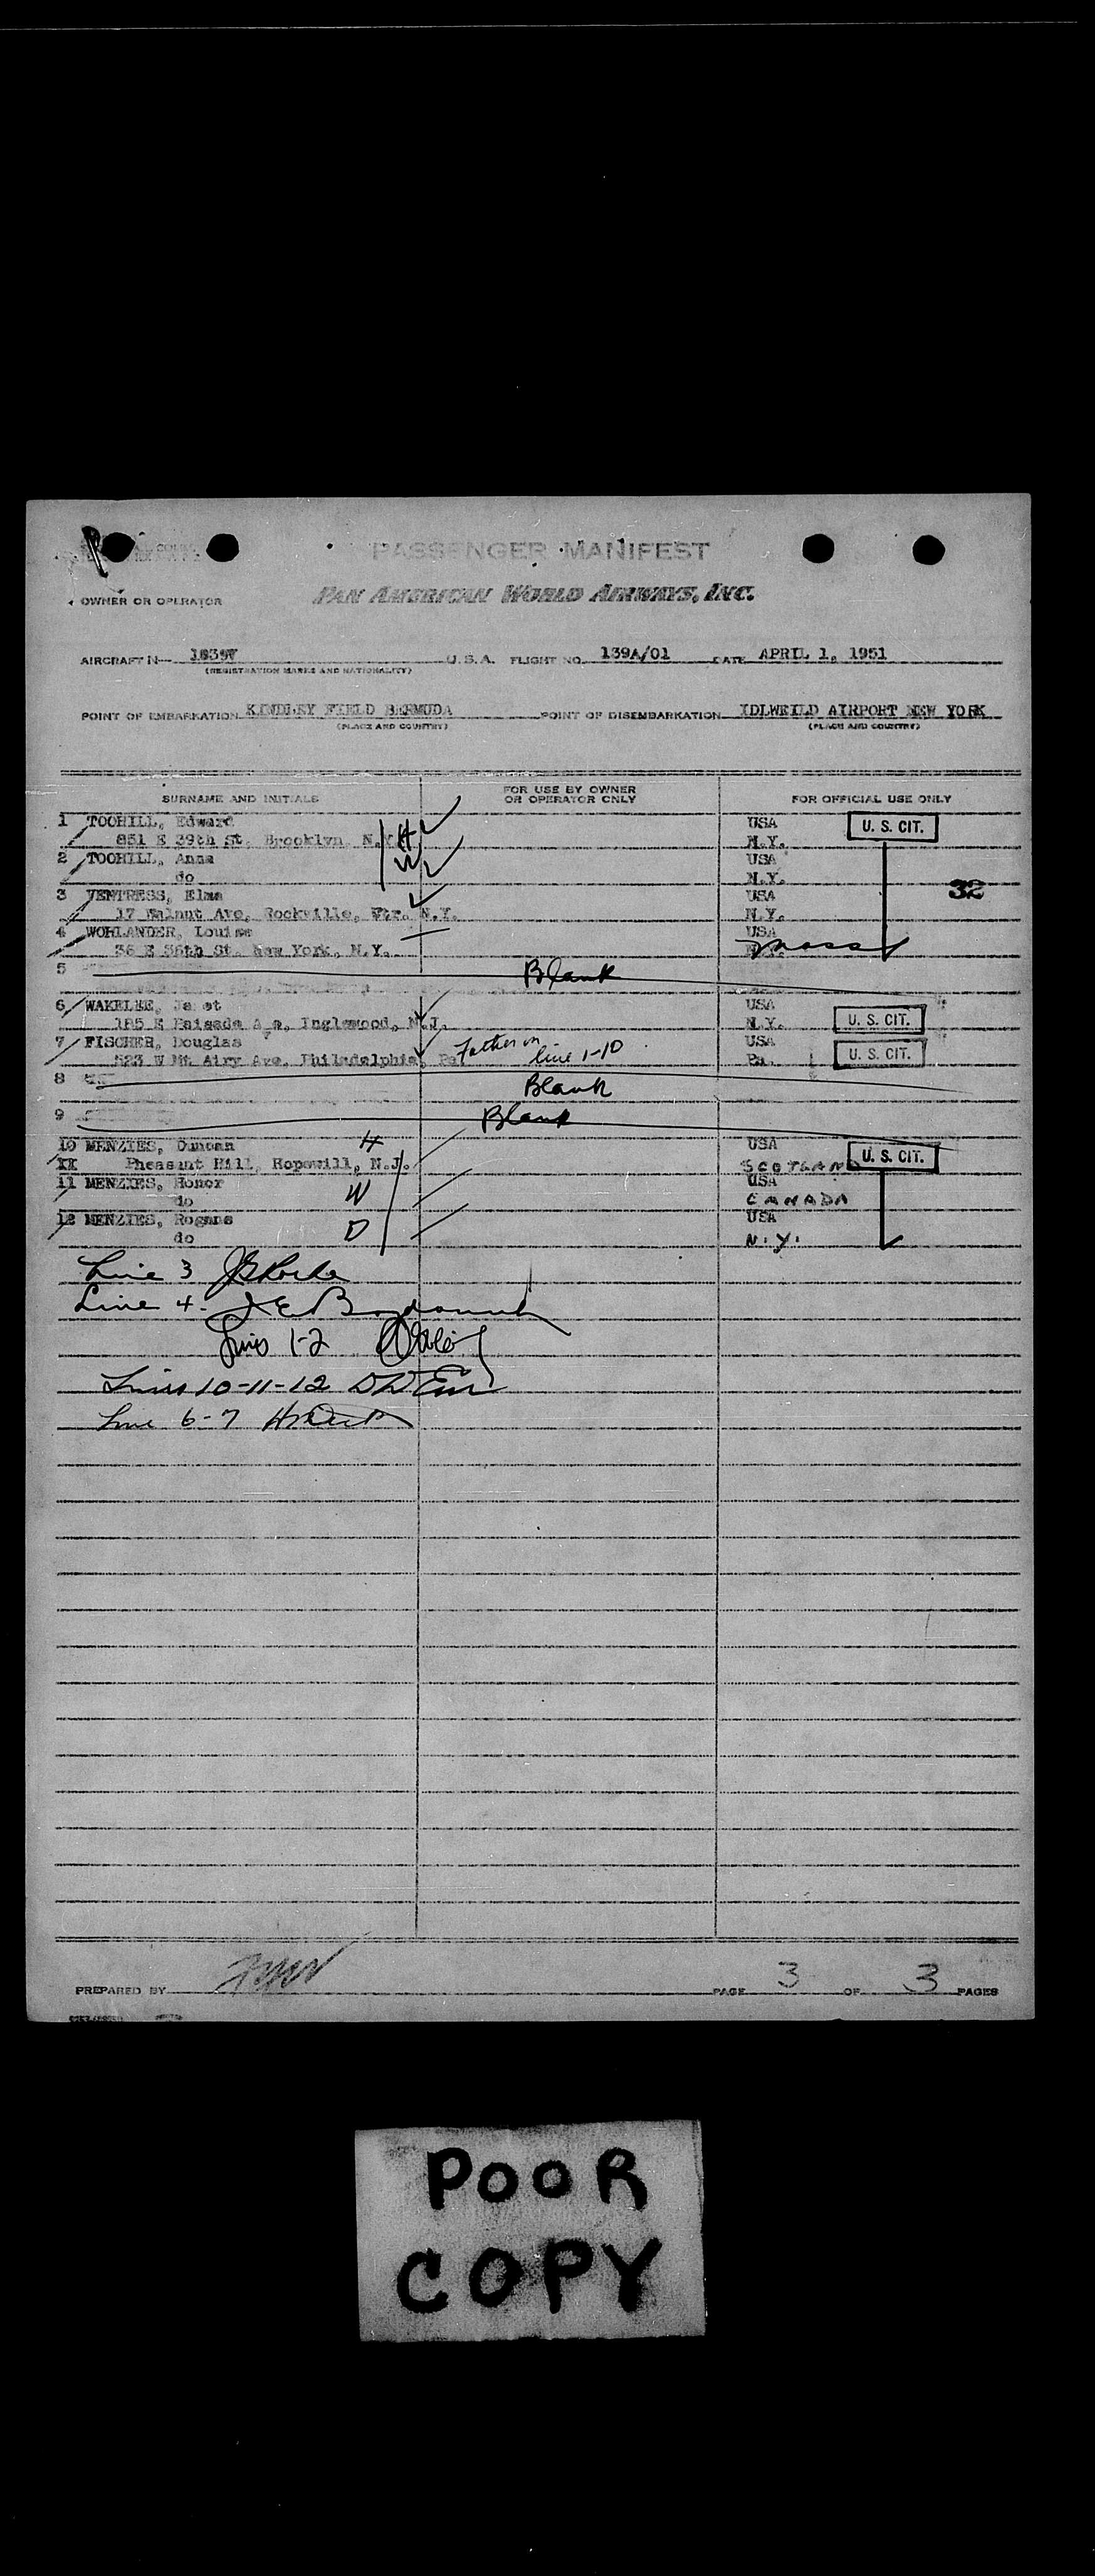 PASSENGER MANIFEST
PAN AMERICAN WORLD AIRWAYS, INC.
OWNER OR OPERATOR
AIRCRAFT N- 1039V U.S.A. FLIGHT NO. 139A/01 DATE APRIL 1, 1951
(REGISTRATION MARKS AND NATIONALITY)
POINT OF EMBARKATION KINDLEY FIELD BERMUDA POINT OF DISEMBARKATION IDLWEILD AIRPORT NEW YORK
(PLACE AND COUNTRY) (PLACE AND COUNTRY)
SURNAME AND INITIALS FOR USE BY OWNER OR OPERATOR ONLY FOR OFFICIAL USE ONLY
1 TOOHILL, Edward USA U. S. CIT.
851 E 39th St, Brooklyn, N.Y. H N.Y.
2 TOOHILL, Anna W USA
do N.Y. 32
3 VENTRESS, Elma USA
17 Walnut Ave, Rockville, Ctr. N.Y. N.Y.
4 WOHLANDER, Louise USA
36 E 36th St. New York, N.Y. Mass
5 Blank
6 WAKELEE, Ja et USA
185 E Palisade A e, Inglewood, N.J. N.Y. U. S. CIT.
7 FISCHER, Douglas USA
523 W Mt. Airy Ave, Philadelphia, Pa. Father on line 1-10 Pa. U. S. CIT.
8 Blank
9 Blank
10 MENZIES, Duncan H USA U. S. CIT.
XX Pheasant Hill, Hopewill, N.J. SCOTLAND
11 MENZIES, Honor W USA
do CANADA
12 MENZIES, Rogans D USA
do N.Y.
Line 3
Line 4.
Lines 1-2
Lines 10-11-12
Line 6-7
PREPARED BY PAGE 3 OF 3 PAGES
POOR
COPY